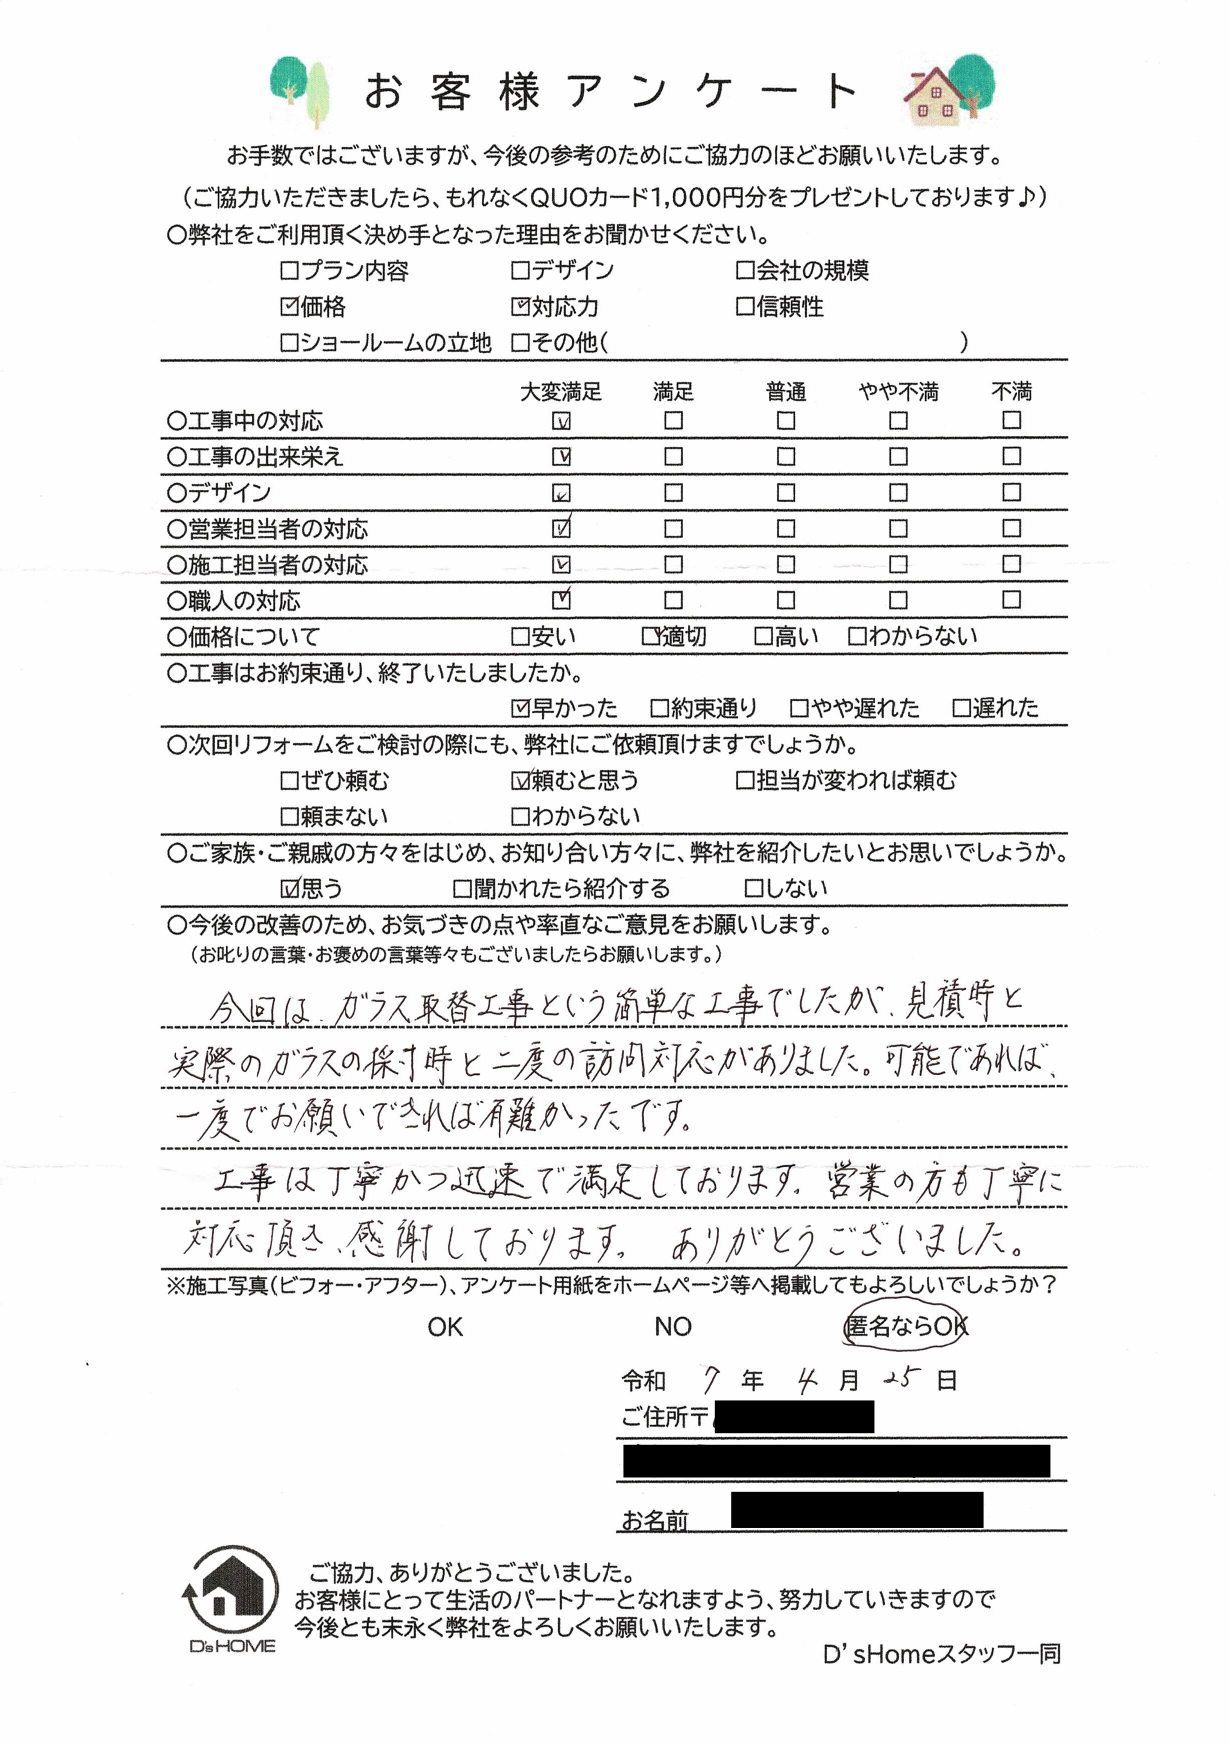 お客様アンケート
お手数ではございますが、今後の参考のためにご協力のほどお願いいたします。
（ご協力いただきましたら、もれなくQUOカード1,000円分をプレゼントしております♪）
〇弊社をご利用頂く決め手となった理由をお聞かせください。
□プラン内容 □デザイン □会社の規模
☑価格 ☑対応力 □信頼性
□ショールームの立地 □その他( )
大変満足 満足 普通 やや不満 不満
〇工事中の対応 ☑ □ □ □ □
〇工事の出来栄え ☑ □ □ □ □
〇デザイン ☑ □ □ □ □
〇営業担当者の対応 ☑ □ □ □ □
〇施工担当者の対応 ☑ □ □ □ □
〇職人の対応 ☑ □ □ □ □
〇価格について □安い ☑適切 □高い □わからない
〇工事はお約束通り、終了いたしましたか。
☑早かった □約束通り □やや遅れた □遅れた
〇次回リフォームをご検討の際にも、弊社にご依頼頂けますでしょうか。
□ぜひ頼む ☑頼むと思う □担当が変われば頼む
□頼まない □わからない
〇ご家族・ご親戚の方々をはじめ、お知り合い方々に、弊社を紹介したいとお思いでしょうか。
☑思う □聞かれたら紹介する □しない
〇今後の改善のため、お気づきの点や率直なご意見をお願いします。
（お叱りの言葉・お褒めの言葉等々もございましたらお願いします。）
今回は、ガラス取替工事という簡単な工事でしたが、見積時と
実際のガラスの採寸時と二度の訪問対応がありました。可能であれば、
一度でお願いできれば有難かったです。
工事は丁寧かつ迅速で満足しております。営業の方も丁寧に
対応頂き、感謝しております。 ありがとうございました。
※施工写真(ビフォー・アフター)、アンケート用紙をホームページ等へ掲載してもよろしいでしょうか？
OK NO 匿名ならOK
令和 7 年 4 月 25 日
ご住所〒
お名前
ご協力、ありがとうございました。
お客様にとって生活のパートナーとなれますよう、努力していきますので
今後とも末永く弊社をよろしくお願いいたします。
D's HOME
D'sHomeスタッフ一同